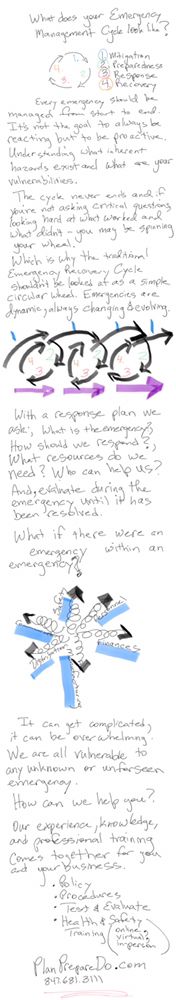 What does your Emergency
Management Cycle look like?
1 Mitigation
2 Preparedness
3 Response
4 Recovery
1
2
3
4
Every emergency should be
managed from start to end.
It's not the goal to always be
reacting but to be proactive.
Understanding what inherent
hazards exist and what are your
vulnerabilities.
The cycle never ends and if
you're not asking critical questions,
looking hard at what worked and
what didn't - you may be spinning
your wheel.
Which is why the traditional
Emergency Recovery Cycle
shouldn't be looked at as a simple
circular wheel. Emergencies are
dynamic, always changing & evolving.
With a response plan we
ask:, What is the emergency?,
How should we respond?,
What resources do we
need? Who can help us?
And, evaluate during the
emergency until it has
been resolved.
What if there were an
emergency within an
emergency?
Finances
It can get complicated,
it can be overwhelming
We are all vulnerable to
any unknown or unforseen
emergency.
How can we help you?
Our experience, knowledge,
and professional training
comes together for you
and your business.
• Policy
• Procedures
• Test & Evaluate
• Health & Safety
Training
online
virtual
in person
PlanPrepareDo.com
847.681.3111